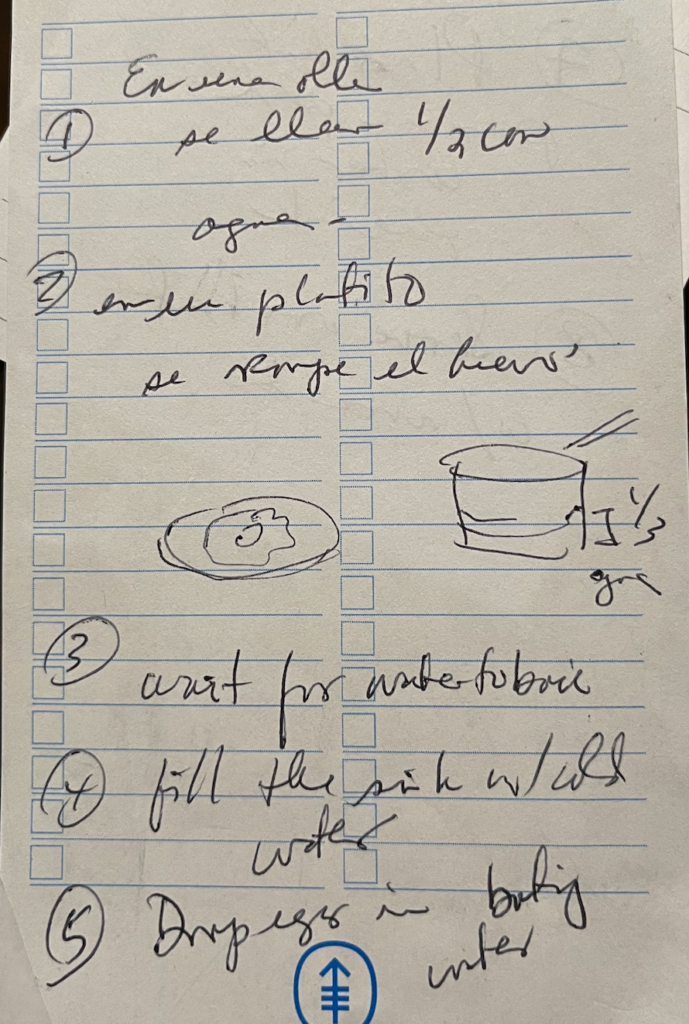 En una olla
① se llena 1/2 con
agua.
② en un platito
se rompe el huevo
1/3
agua
③ wait for water to boil
④ fill the sink w/ cold
water
⑤ Drop eggs in boiling
water